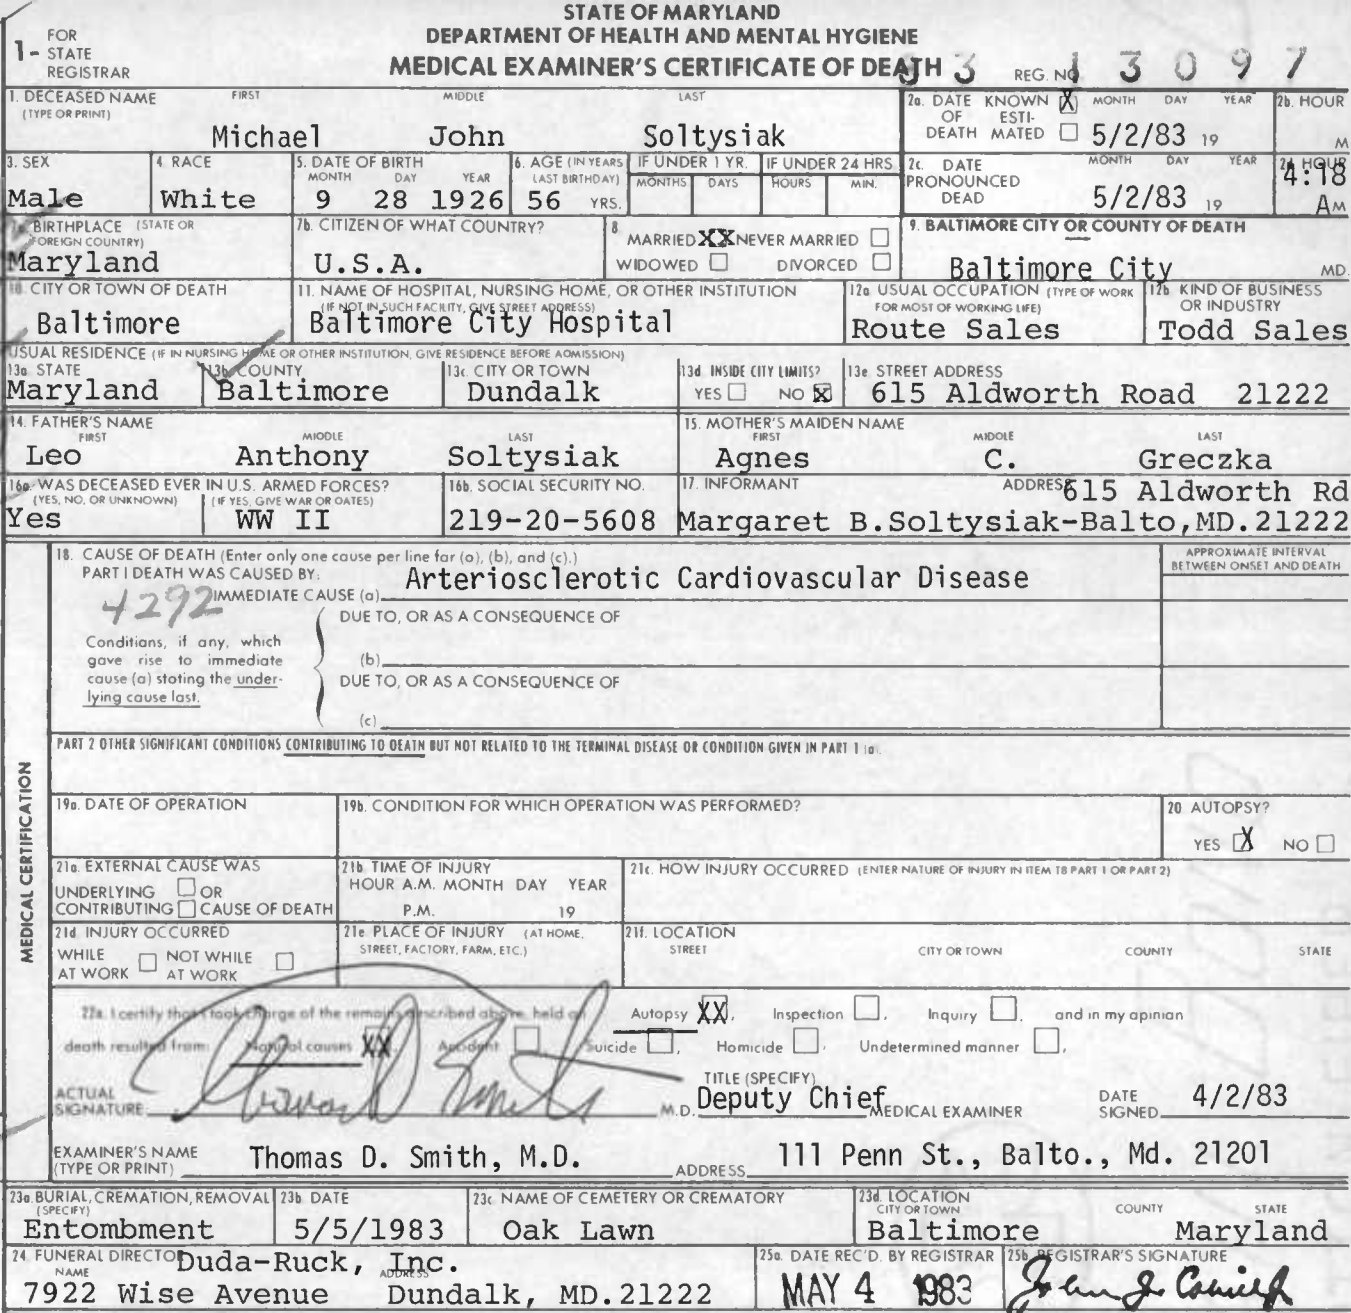 STATE OF MARYLAND
DEPARTMENT OF HEALTH AND MENTAL HYGIENE
MEDICAL EXAMINER'S CERTIFICATE OF DEATH
1- FOR STATE REGISTRAR
83 REG. NO 13097
1. DECEASED NAME (TYPE OR PRINT) FIRST MIDDLE LAST
Michael John Soltysiak
2a. DATE OF DEATH KNOWN X ESTIMATED MONTH DAY YEAR 5/2/83 19
2b. HOUR M
3. SEX Male
4. RACE White
5. DATE OF BIRTH MONTH DAY YEAR 9 28 1926
6. AGE (IN YEARS LAST BIRTHDAY) 56 YRS.
IF UNDER 1 YR. MONTHS DAYS
IF UNDER 24 HRS. HOURS MIN.
2c. DATE PRONOUNCED DEAD MONTH DAY YEAR 5/2/83 19
2d HOUR 4:18 AM
7a. BIRTHPLACE (STATE OR FOREIGN COUNTRY) Maryland
7b. CITIZEN OF WHAT COUNTRY? U.S.A.
8 MARRIED XX NEVER MARRIED WIDOWED DIVORCED
9. BALTIMORE CITY OR COUNTY OF DEATH Baltimore City MD.
10. CITY OR TOWN OF DEATH Baltimore
11. NAME OF HOSPITAL, NURSING HOME, OR OTHER INSTITUTION (IF NOT IN SUCH FACILITY, GIVE STREET ADDRESS) Baltimore City Hospital
12a. USUAL OCCUPATION (TYPE OF WORK FOR MOST OF WORKING LIFE) Route Sales
12b. KIND OF BUSINESS OR INDUSTRY Todd Sales
USUAL RESIDENCE (IF IN NURSING HOME OR OTHER INSTITUTION, GIVE RESIDENCE BEFORE ADMISSION)
13a. STATE Maryland
13b. COUNTY Baltimore
13c. CITY OR TOWN Dundalk
13d. INSIDE CITY LIMITS? YES NO X
13e STREET ADDRESS 615 Aldworth Road 21222
14. FATHER'S NAME FIRST MIDDLE LAST
Leo Anthony Soltysiak
15. MOTHER'S MAIDEN NAME FIRST MIDDLE LAST
Agnes C. Greczka
16a. WAS DECEASED EVER IN U.S. ARMED FORCES? (YES, NO, OR UNKNOWN) (IF YES, GIVE WAR OR DATES)
Yes WW II
16b. SOCIAL SECURITY NO. 219-20-5608
17. INFORMANT ADDRESS 615 Aldworth Rd
Margaret B.Soltysiak-Balto,MD.21222
MEDICAL CERTIFICATION
18. CAUSE OF DEATH (Enter only one cause per line for (a), (b), and (c).)
APPROXIMATE INTERVAL BETWEEN ONSET AND DEATH
PART I DEATH WAS CAUSED BY:
IMMEDIATE CAUSE (a) Arteriosclerotic Cardiovascular Disease
4292
DUE TO, OR AS A CONSEQUENCE OF
Conditions, if any, which gave rise to immediate cause (a) stating the underlying cause last.
(b)
DUE TO, OR AS A CONSEQUENCE OF
(c)
PART 2 OTHER SIGNIFICANT CONDITIONS CONTRIBUTING TO DEATH BUT NOT RELATED TO THE TERMINAL DISEASE OR CONDITION GIVEN IN PART 1 (a).
19a. DATE OF OPERATION
19b. CONDITION FOR WHICH OPERATION WAS PERFORMED?
20 AUTOPSY? YES X NO
21a. EXTERNAL CAUSE WAS UNDERLYING OR CONTRIBUTING CAUSE OF DEATH
21b TIME OF INJURY HOUR A.M. MONTH DAY YEAR P.M. 19
21c. HOW INJURY OCCURRED (ENTER NATURE OF INJURY IN ITEM 18 PART 1 OR PART 2)
21d INJURY OCCURRED WHILE AT WORK NOT WHILE AT WORK
21e PLACE OF INJURY (AT HOME, STREET, FACTORY, FARM, ETC.)
21f. LOCATION STREET CITY OR TOWN COUNTY STATE
22a. I certify that I took charge of the remains described above, held an Autopsy XX, Inspection, Inquiry, and in my opinion
death resulted from: Natural causes XX, Accident, Suicide, Homicide, Undetermined manner,
ACTUAL SIGNATURE M.D.
TITLE (SPECIFY) Deputy Chief MEDICAL EXAMINER
DATE SIGNED 4/2/83
EXAMINER'S NAME (TYPE OR PRINT) Thomas D. Smith, M.D.
ADDRESS 111 Penn St., Balto., Md. 21201
23a. BURIAL, CREMATION, REMOVAL (SPECIFY) Entombment
23b DATE 5/5/1983
23c NAME OF CEMETERY OR CREMATORY Oak Lawn
23d. LOCATION CITY OR TOWN COUNTY STATE Baltimore Maryland
24. FUNERAL DIRECTOR NAME ADDRESS
Duda-Ruck, Inc.
7922 Wise Avenue Dundalk, MD.21222
25a. DATE REC'D. BY REGISTRAR MAY 4 1983
25b REGISTRAR'S SIGNATURE